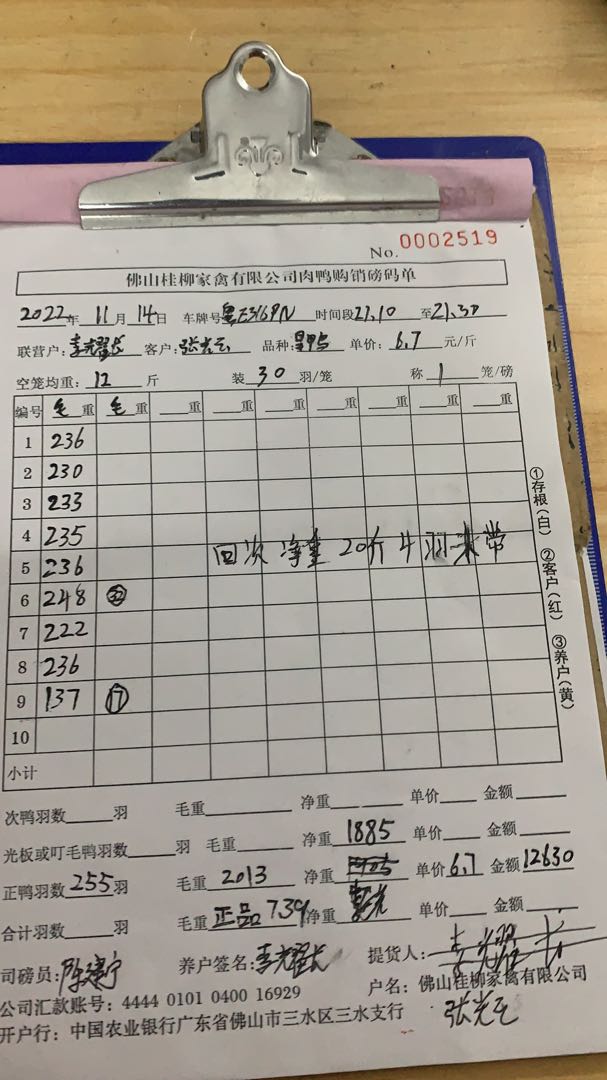 No. 0002519
佛山桂柳家禽有限公司肉鸭购销磅码单
2022年 11月 14日 车牌号 粤E3169N 时间段 21.10 至 21.30
联营户: 李耀长 客户: 张光云 品种: 单价: 6.7 元/斤
空笼均重: 12 斤 装 30 羽/笼 称 1 笼/磅
编号 毛重 毛重 重 重 重 重 重 重
1 236
2 230
3 233
4 235
回次 净重 20斤 4羽未带
5 236
6 248
7 222
8 236
9 137 17
10
小计
①存根(白) ②客户(红) ③养户(黄)
次鸭羽数 羽 毛重 净重 单价 金额
光板或叮毛鸭羽数 羽 毛重 净重 1885 单价 金额
正鸭羽数 255 羽 毛重 2013 净重 单价 6.7 金额 12630
合计羽数 羽 毛重 正品 7.39 净重 单价 金额
司磅员: 养户签名: 李耀长 提货人:
公司汇款账号: 4444 0101 0400 16929 户名: 佛山桂柳家禽有限公司
开户行: 中国农业银行广东省佛山市三水区三水支行 张光云